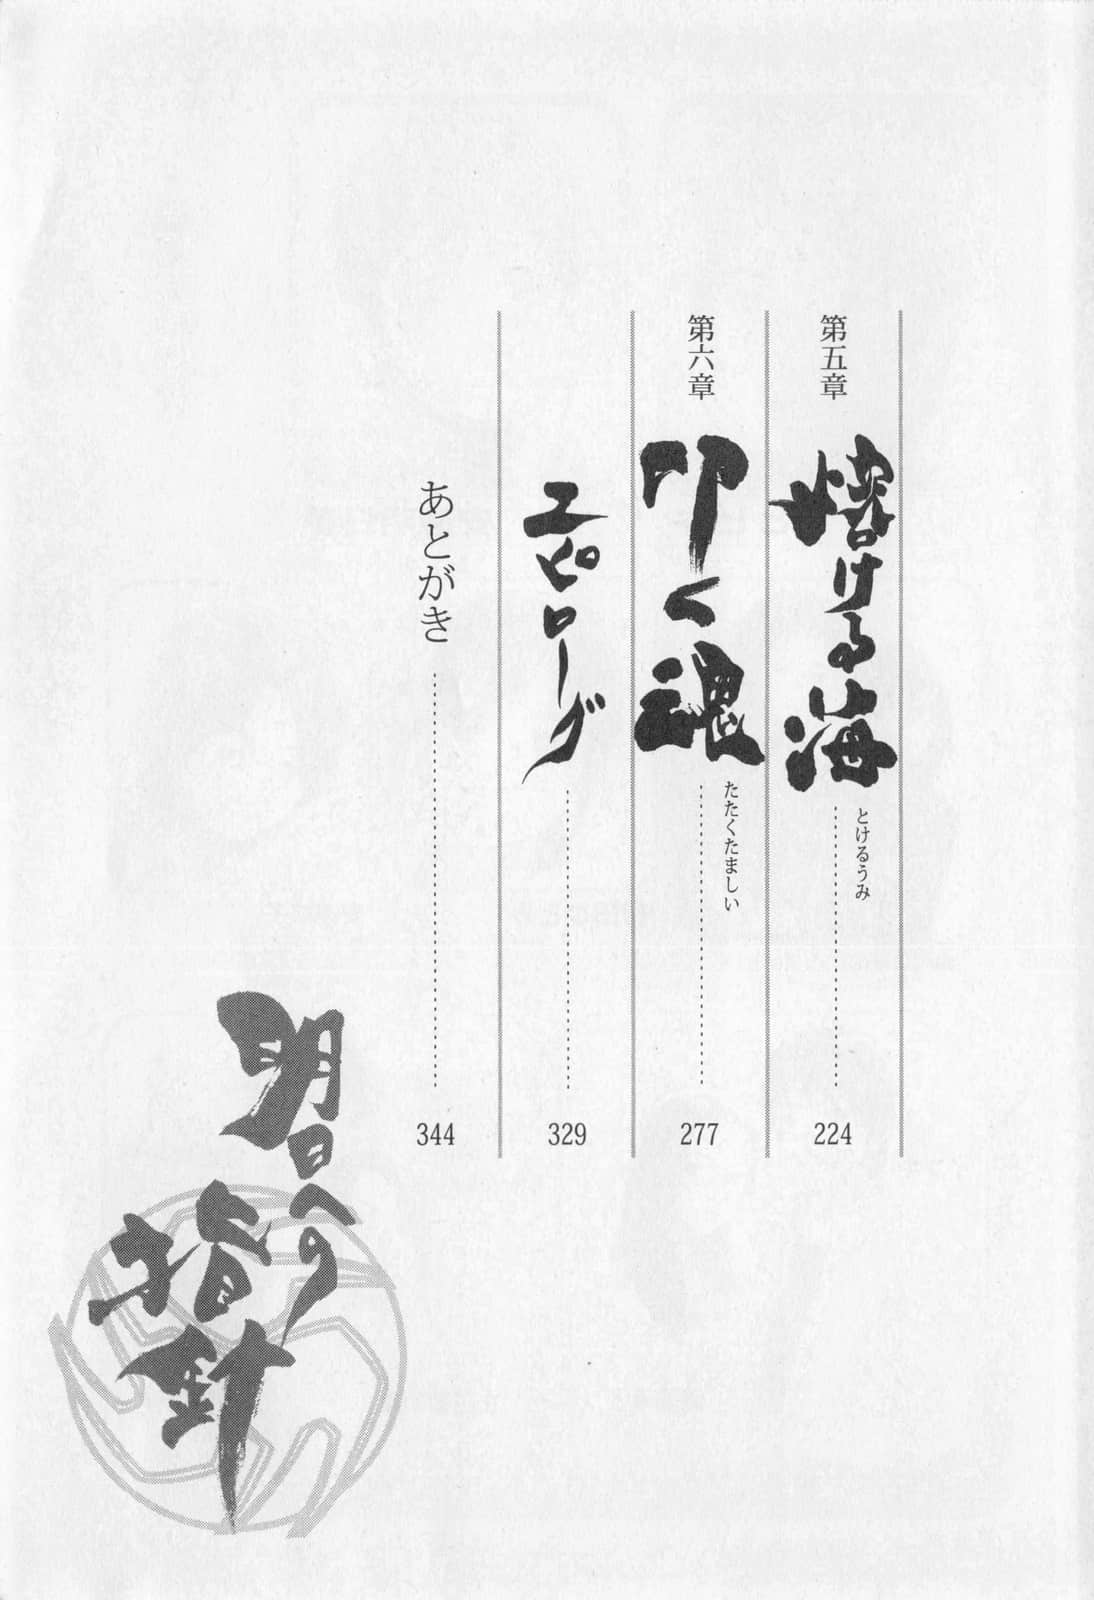 第五章
熔ける海
とけるうみ
224
第六章
叩く魂
たたくたましい
277
エピローグ
329
あとがき
344
明日への
指針